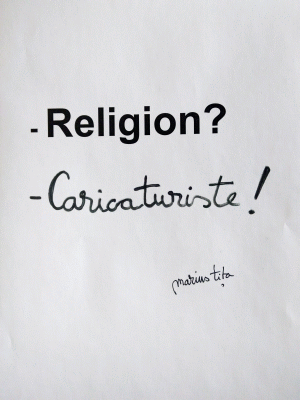 - Religion?
- Caricaturiste!
marius tița